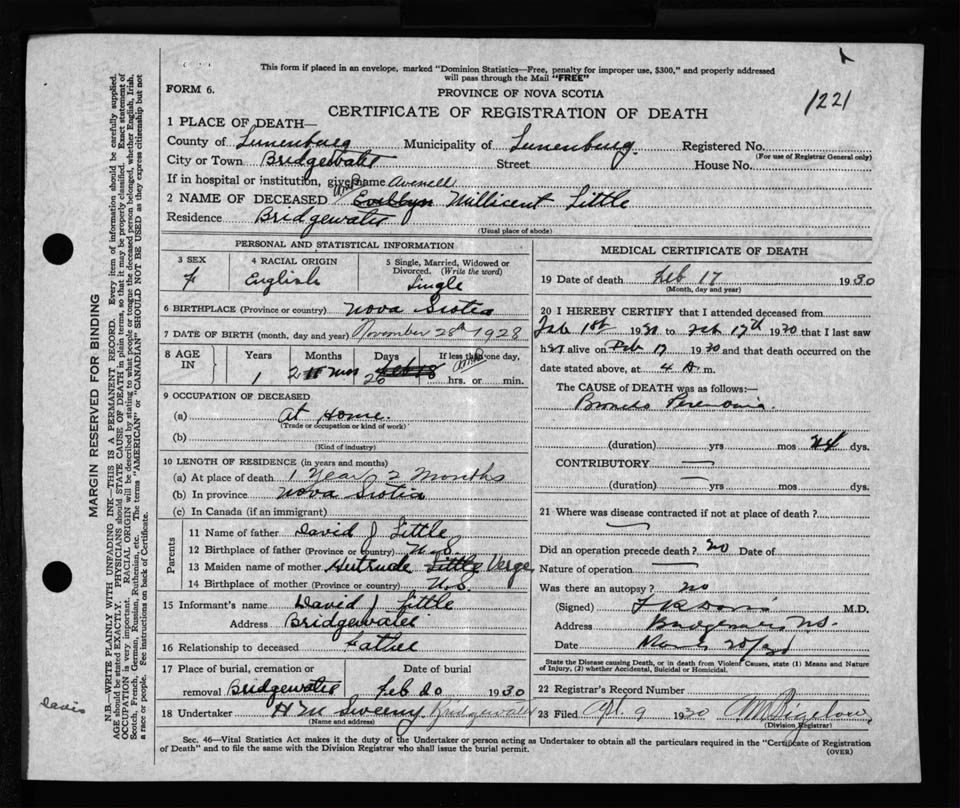 This form if placed in an envelope, marked "Dominion Statistics—Free, penalty for improper use, $300," and properly addressed
will pass through the Mail "FREE"
FORM 6.
PROVINCE OF NOVA SCOTIA
1221
CERTIFICATE OF REGISTRATION OF DEATH
1 PLACE OF DEATH—
County of Lunenburg Municipality of Lunenburg Registered No.
(For use of Registrar General only)
City or Town Bridgewater Street House No.
If in hospital or institution, give name Avenell
2 NAME OF DECEASED Millicent Little
Residence Bridgewater
(Usual place of abode)
PERSONAL AND STATISTICAL INFORMATION
3 SEX 4 RACIAL ORIGIN 5 Single, Married, Widowed or
Divorced. (Write the word)
f English Single
6 BIRTHPLACE (Province or country) Nova Scotia
7 DATE OF BIRTH (month, day and year) November 28th 1928
8 AGE IN Years Months Days If less than one day,
1 2 mos 20 hrs. or min.
9 OCCUPATION OF DECEASED
(a) At Home.
(Trade or occupation or kind of work)
(b)
(Kind of industry)
10 LENGTH OF RESIDENCE (in years and months)
(a) At place of death 1 Year 2 Months
(b) In province Nova Scotia
(c) In Canada (if an immigrant)
Parents
11 Name of father David J Little
12 Birthplace of father (Province or country) N.S.
13 Maiden name of mother Gertrude Little Verge
14 Birthplace of mother (Province or country) N.S.
15 Informant's name David J Little
Address Bridgewater
16 Relationship to deceased Father
17 Place of burial, cremation or Date of burial
removal Bridgewater Feb 20 1930
18 Undertaker H M Sweeny Bridgewater
(Name and address)
MEDICAL CERTIFICATE OF DEATH
19 Date of death Feb 17 1930
(Month, day and year)
20 I HEREBY CERTIFY that I attended deceased from
Feb 1st 1930 to Feb 17th 1930 that I last saw
her alive on Feb 17 1930 and that death occurred on the
date stated above, at 4 A m.
The CAUSE of DEATH was as follows:—
Broncho Pneumonia
(duration) yrs mos dys.
CONTRIBUTORY —
(duration) — yrs. mos. dys.
21 Where was disease contracted if not at place of death?
Did an operation precede death? no Date of
Nature of operation
Was there an autopsy? no
(Signed) M.D.
Address Bridgewater N.S.
Date
State the Disease causing Death, or in death from Violent Causes, state (1) Means and Nature
of Injury, (2) whether Accidental, Suicidal or Homicidal.
22 Registrar's Record Number
23 Filed Apl. 9 1930 A M Bigelow
(Division Registrar)
Sec. 46—Vital Statistics Act makes it the duty of the Undertaker or person acting as Undertaker to obtain all the particulars required in the "Certificate of Registration
of Death" and to file the same with the Division Registrar who shall issue the burial permit.
(OVER)
MARGIN RESERVED FOR BINDING
N.B.—WRITE PLAINLY WITH UNFADING INK—THIS IS A PERMANENT RECORD. Every item of information should be carefully supplied.
AGE should be stated EXACTLY. PHYSICIANS should STATE CAUSE OF DEATH in plain terms, so that it may be properly classified. Exact statement of
OCCUPATION is very important. RACIAL ORIGIN will be described by stating to what people or tongue the deceased person belonged, whether English, Irish,
Scotch, French, German, Russian, Ruthenian, etc. The terms "AMERICAN" or "CANADIAN" SHOULD NOT BE USED as they express citizenship but not
a race or people. See instructions on back of Certificate.
Davis